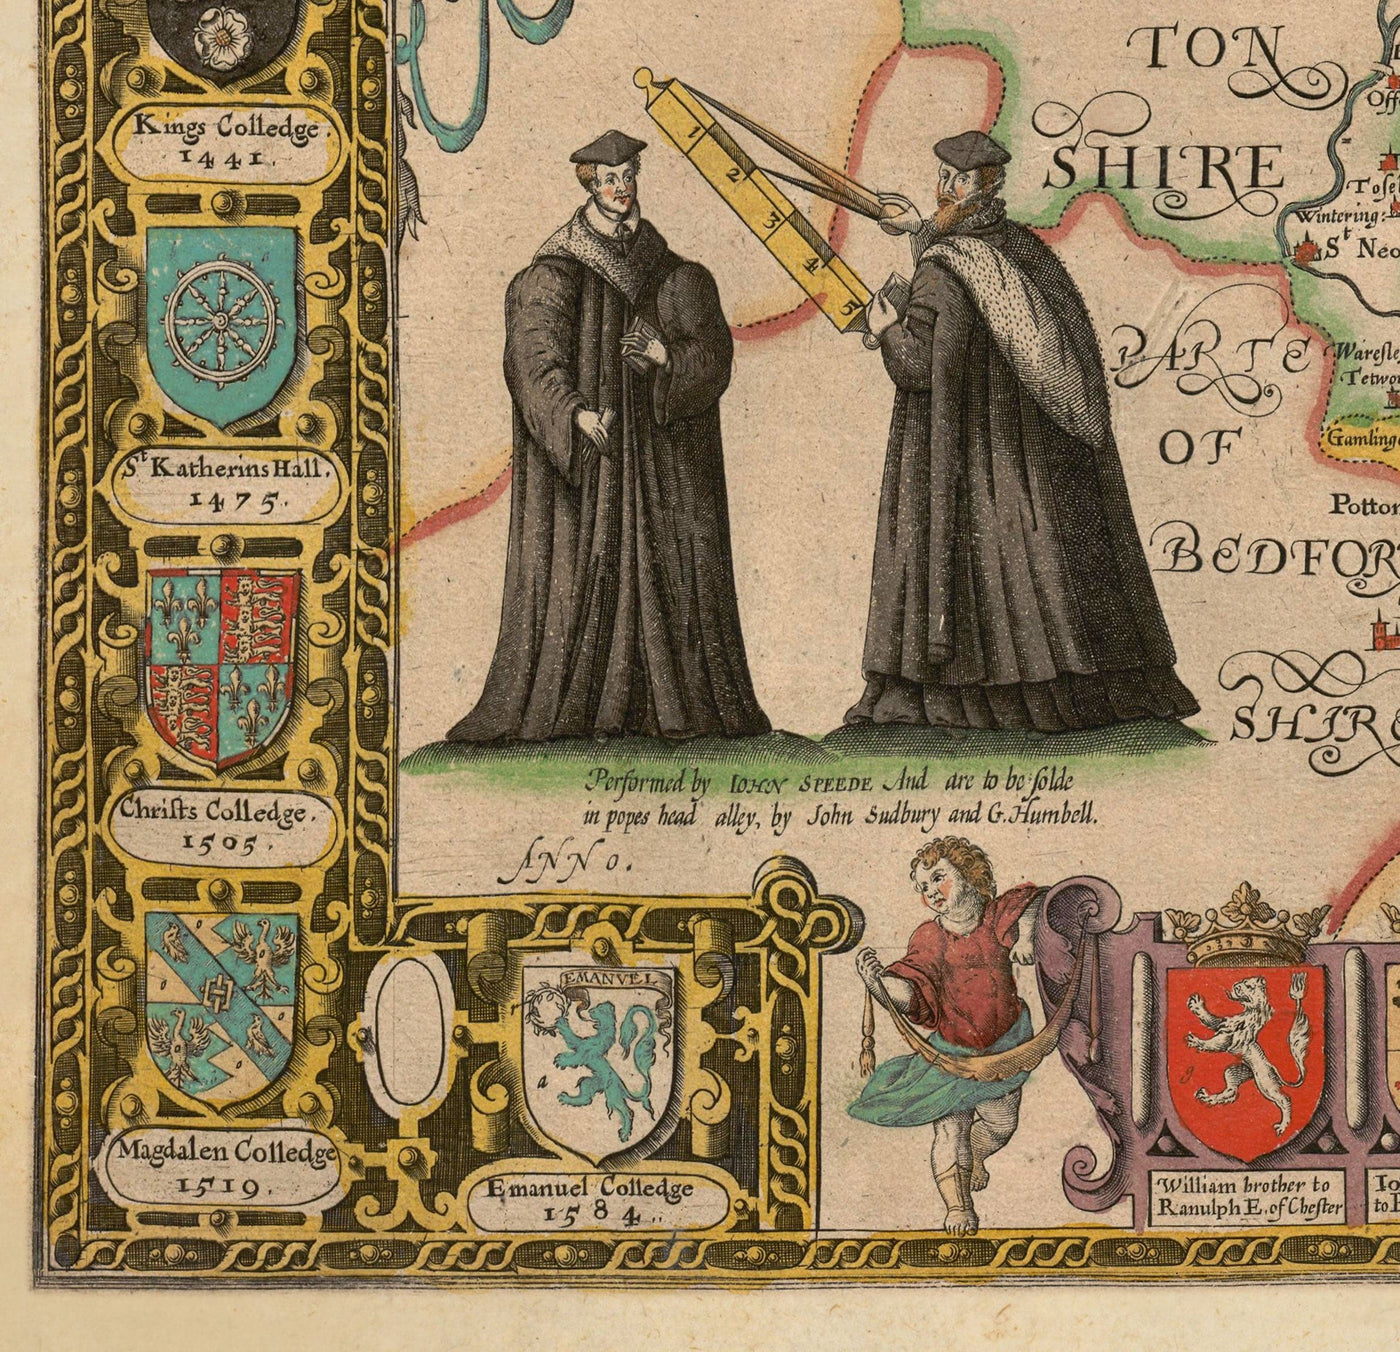 Kings Colledge.
1441.
St Katherins Hall.
1475.
Christs Colledge.
1505.
Magdalen Colledge
1519.
EMANVEL
a
Emanuel Colledge
1584.
1
2
3
4
5
Performed by IOHN SPEEDE And are to be solde
in popes head alley, by John Sudbury and G. Humbell.
ANNO.
TON
SHIRE
PARTE
OF
BEDFOR
SHIR
Off
Tosel
Wintering:
St Neo
Waresley
Tetwor
Gamlinge
Potton
g
William brother to
Ranulph E. of Chester
Io
to